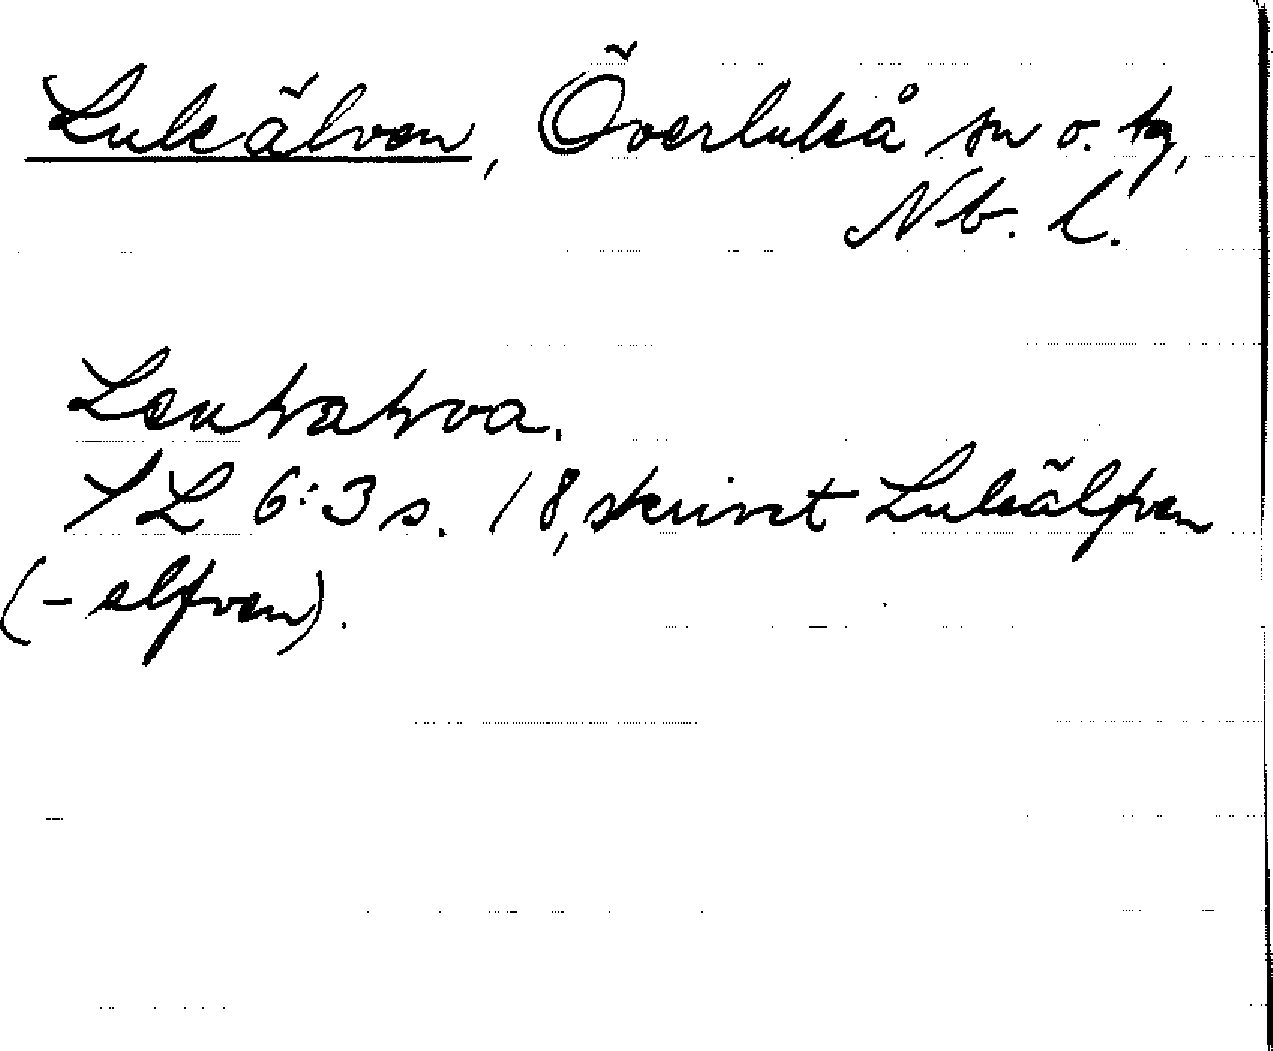 Luleälven, Överluleå sn o. tg,
Nb. l.
Lentatva.
SL 6:3 s. 18, skrivet Luleälfven
(-elfven).